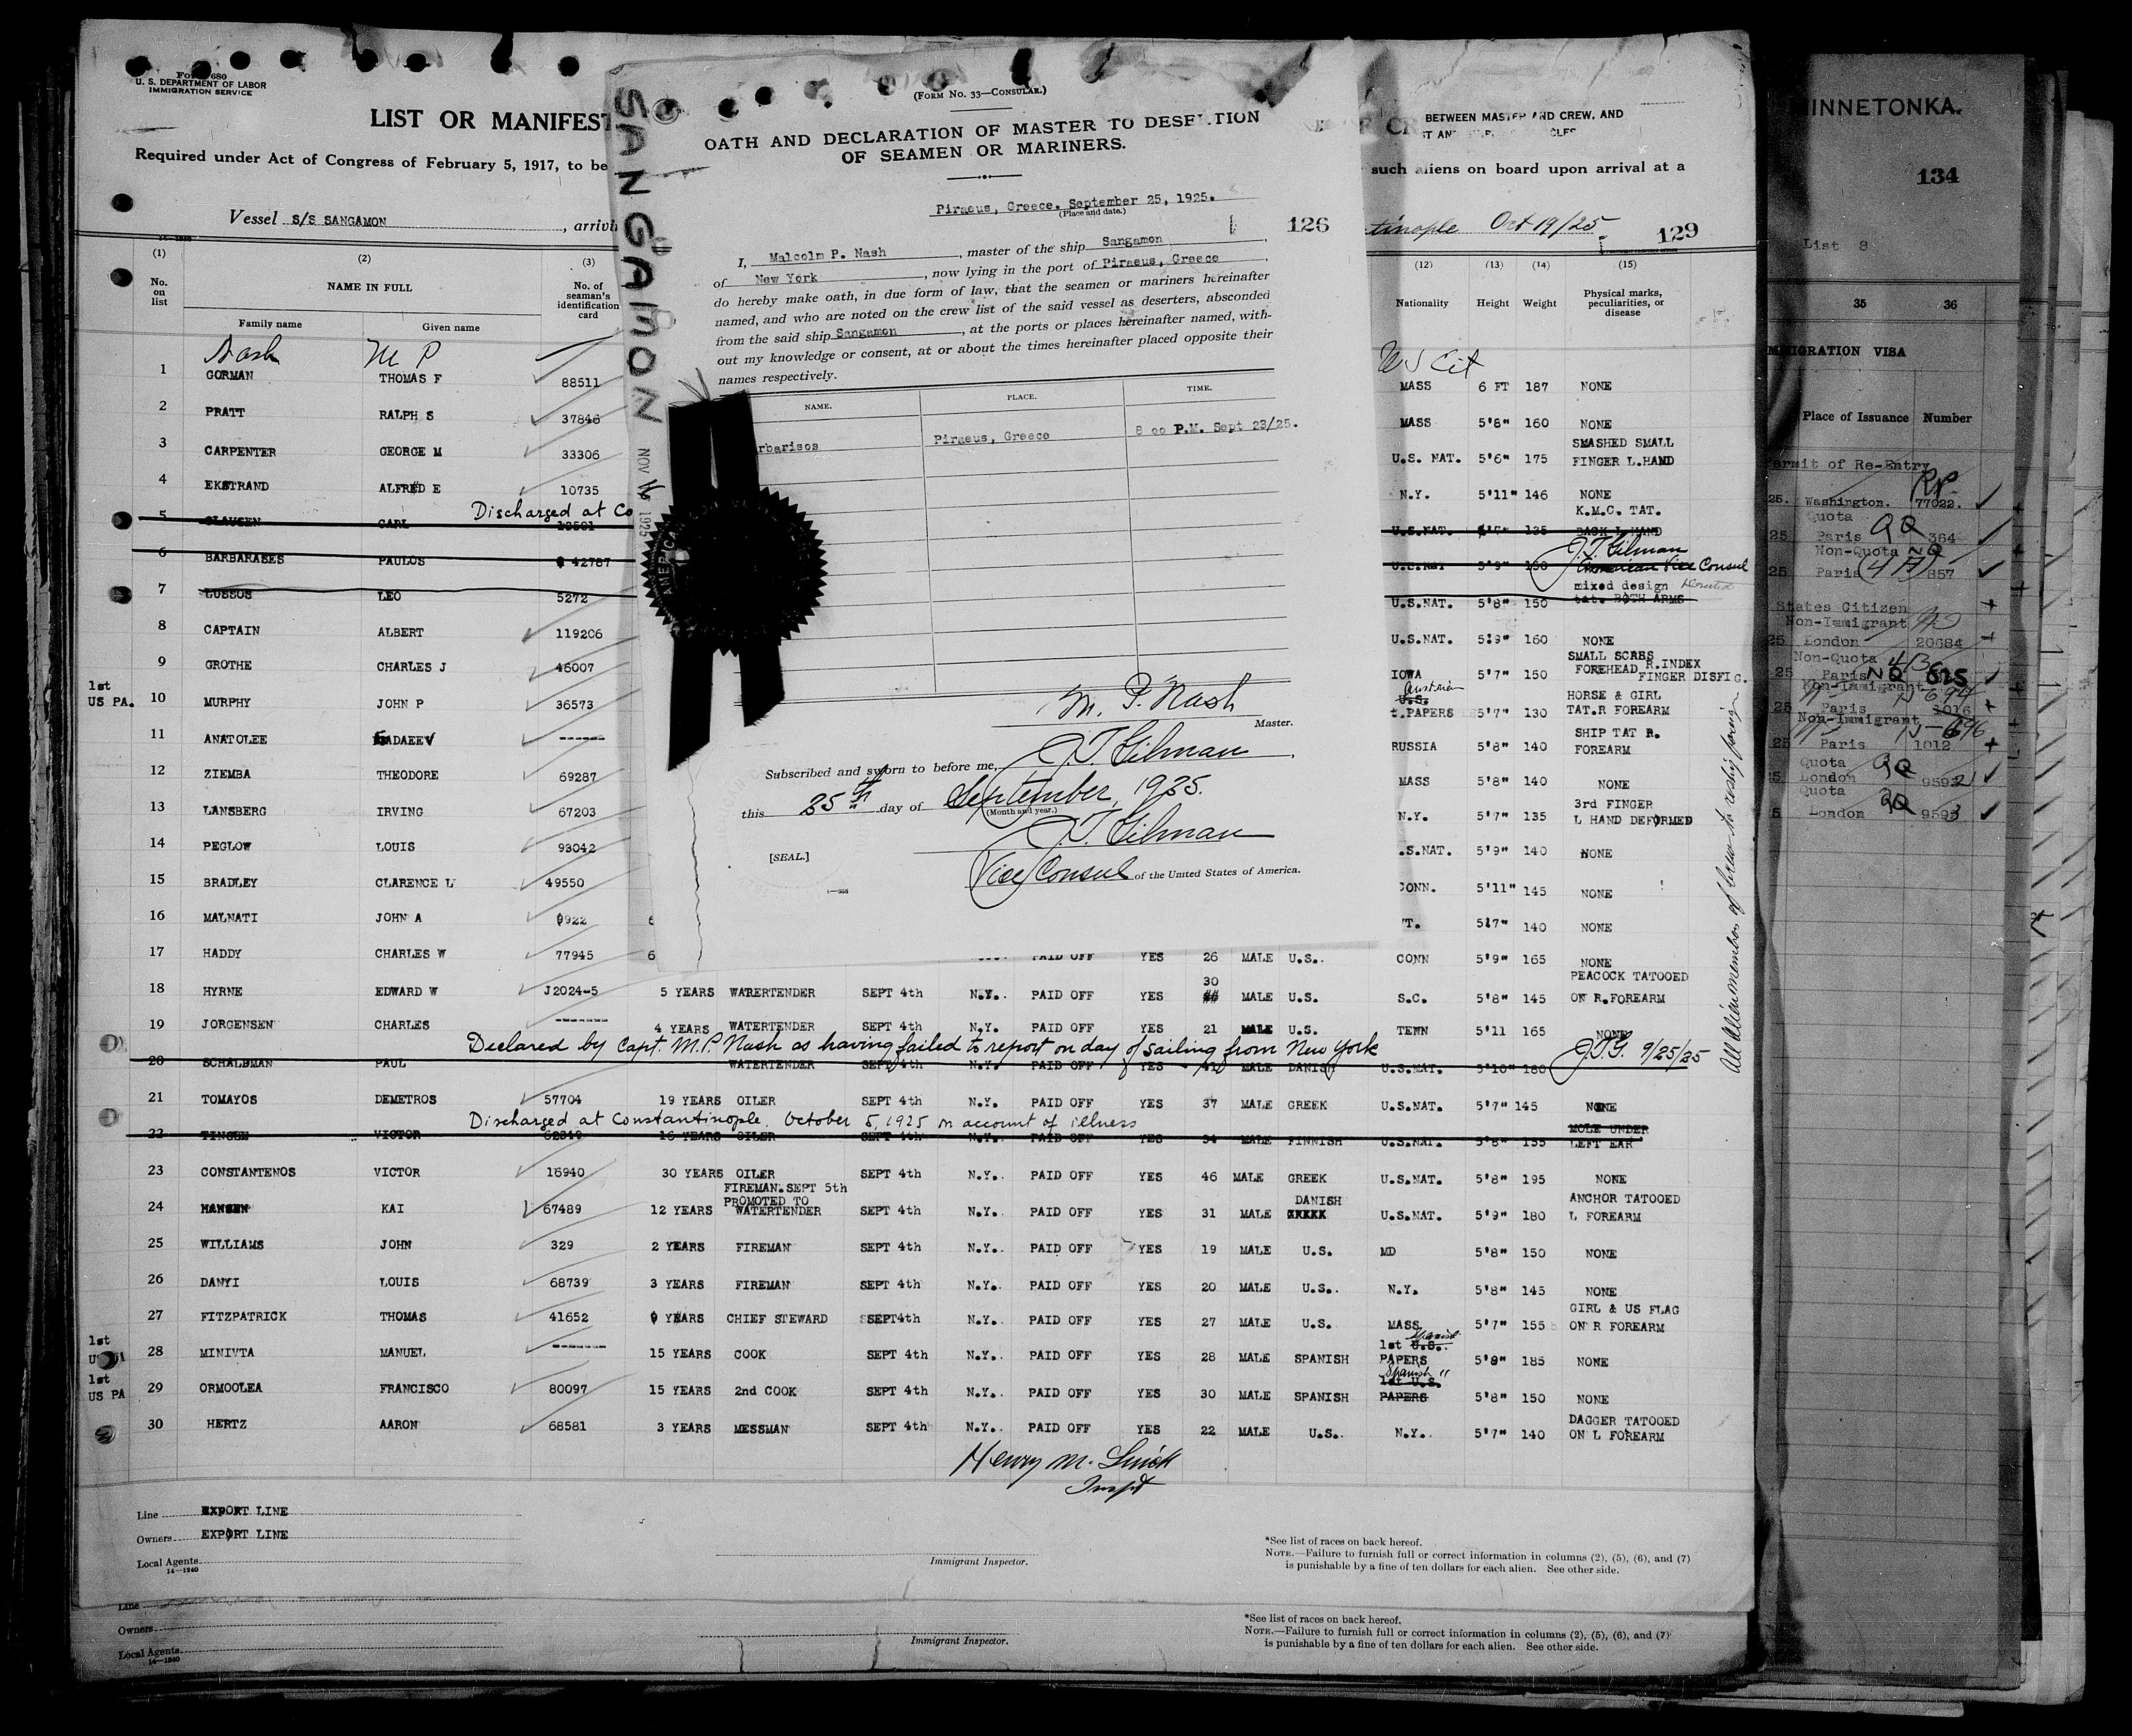 Form 680
U. S. DEPARTMENT OF LABOR
IMMIGRATION SERVICE
LIST OR MANIFEST
Required under Act of Congress of February 5, 1917, to be
Vessel S/S SANGAMON , arrivin
(1) (2) (3)
No. on list
NAME IN FULL
No. of seaman's identification card
Family name Given name
Nash M P
1 GORMAN THOMAS F 88511
2 PRATT RALPH S 37846
3 CARPENTER GEORGE M 33306
4 EKSTRAND ALFRED E 10735
Discharged at Co
5 CLAUSEN CARL
6 BARBARASES PAULOS 42787
7 LUSSOS LEO 5272
8 CAPTAIN ALBERT 119206
9 GROTHE CHARLES J 46007
1st
US PA. 10 MURPHY JOHN P 36573
11 ANATOLEE ------
12 ZIEMBA THEODORE 69287
13 LANSBERG IRVING 67203
14 PEGLOW LOUIS 93042
15 BRADLEY CLARENCE L 49550
16 MALNATI JOHN A 9922 6
17 HADDY CHARLES W 77945 6
SANGAMON
NOV 16 1925
(FORM NO. 33—CONSULAR.)
OATH AND DECLARATION OF MASTER TO DESERTION
OF SEAMEN OR MARINERS.
Piraeus, Greece. September 25, 1925.
(Place and date.)
126
I, Malcolm P. Nash , master of the ship Sangamon ,
of New York , now lying in the port of Piraeus, Greece ,
do hereby make oath, in due form of law, that the seamen or mariners hereinafter
named, and who are noted on the crew list of the said vessel as deserters, absconded
from the said ship Sangamon , at the ports or places hereinafter named, with-
out my knowledge or consent, at or about the times hereinafter placed opposite their
names respectively.
NAME. PLACE. TIME.
rbarisos Piraeus, Greece 8 oo P.M. Sept 23/25.
M. P. Nash
Master.
J.T. Gilman
Subscribed and sworn to before me,
this 25th day of September, 1925.
(Month and year.)
J.T. Gilman
[SEAL.]
Vice Consul of the United States of America.
BETWEEN MASTER AND CREW, AND
such aliens on board upon arrival at a
tinople Oct 19/25
129
(12) (13) (14) (15)
Nationality Height Weight Physical marks, peculiarities, or disease
US Cit
MASS 6 FT 187 NONE
MASS 5'8" 160 NONE
SMASHED SMALL
U.S. NAT. 5'6" 175 FINGER L.HAND
N.Y. 5'11" 146 NONE
K.M.C. TAT.
U.S.NAT. 135 BACK L HAND
J.T. Gilman
U.S.NAT 5'9" 150 American Vice Consul
mixed design Deserted
U.S.NAT. 5'8" 150 tat. BOTH ARMS
U.S.NAT. 5'9" 160 NONE
SMALL SCARS
IOWA 5'7" 150 FOREHEAD R.INDEX
FINGER DISFIG.
Austrian
U.S. HORSE & GIRL
t.PAPERS 5'7" 130 TAT.R FOREARM
SHIP TAT R.
RUSSIA 5'8" 140 FOREARM
MASS 5'8" 140 NONE
3rd FINGER
N.Y. 5'7" 135 L HAND DEFORMED
.S.NAT. 5'9" 140 NONE
CONN. 5'11" 145 NONE
T. 5'7" 140 NONE
PAID OFF YES 26 MALE U.S. CONN 5'9" 165 NONE
30 PEACOCK TATOOED
18 HYRNE EDWARD W J2024-5 5 YEARS WATERTENDER SEPT 4th N.Y. PAID OFF YES MALE U.S. S.C. 5'8" 145 ON R.FOREARM
19 JORGENSEN CHARLES ------ 4 YEARS WATERTENDER SEPT 4th N.Y. PAID OFF YES 21 MALE U.S. TENN 5'11 165 NONE
Declared by Capt. M.P. Nash as having failed to report on day of sailing from New York J.T.G. 9/25/25
20 SCHALBMAN PAUL WATERTENDER SEPT 4th N.Y. PAID OFF YES 41 MALE DANISH U.S.NAT. 5'10" 180
21 TOMAYOS DEMETROS 57704 19 YEARS OILER SEPT 4th N.Y. PAID OFF YES 37 MALE GREEK U.S.NAT. 5'7" 145 NONE
Discharged at Constantinople. October 5, 1925 on account of illness
MOLE UNDER
22 VICTOR 16 YEARS OILER SEPT 4th N.Y. PAID OFF YES 34 MALE FINNISH U.S.NAT. 5'8" 155 LEFT EAR
23 CONSTANTENOS VICTOR 16940 30 YEARS OILER SEPT 4th N.Y. PAID OFF YES 46 MALE GREEK U.S.NAT. 5'8" 195 NONE
FIREMAN.SEPT 5th
PROMOTED TO DANISH ANCHOR TATOOED
24 HANSEN KAI 67489 12 YEARS WATERTENDER SEPT 4th N.Y. PAID OFF YES 31 MALE XXXXX U.S.NAT. 5'9" 180 L FOREARM
25 WILLIAMS JOHN 329 2 YEARS FIREMAN SEPT 4th N.Y. PAID OFF YES 19 MALE U.S. MD 5'8" 150 NONE
26 DANYI LOUIS 68739 3 YEARS FIREMAN SEPT 4th N.Y. PAID OFF YES 20 MALE U.S. N.Y. 5'8" 145 NONE
GIRL & US FLAG
27 FITZPATRICK THOMAS 41652 9 YEARS CHIEF STEWARD SEPT4th N.Y. PAID OFF YES 27 MALE U.S. MASS 5'7" 155 ON R FOREARM
1st Spanish
1st U.S.
28 MINIVTA MANUEL ------ 15 YEARS COOK SEPT 4th N.Y. PAID OFF YES 28 MALE SPANISH PAPERS 5'9" 185 NONE
1st Spanish "
1st U.S.
US PA 29 ORMOOLEA FRANCISCO 80097 15 YEARS 2nd COOK SEPT 4th N.Y. PAID OFF YES 30 MALE SPANISH PAPERS 5'8" 150 NONE
DAGGER TATOOED
30 HERTZ AARON 68581 3 YEARS MESSMAN SEPT 4th N.Y. PAID OFF YES 22 MALE U.S. N.Y. 5'7" 140 ON L FOREARM
All alien members of crew to reship foreign
Henry M.
Inspt
Line EXPORT LINE
Owners EXPORT LINE
Local Agents
14—1240
Immigrant Inspector.
*See list of races on back hereof.
NOTE.—Failure to furnish full or correct information in columns (2), (5), (6), and (7)
is punishable by a fine of ten dollars for each alien. See other side.
Line
Owners
Local Agents
14—1240
Immigrant Inspector.
*See list of races on back hereof.
NOTE.—Failure to furnish full or correct information in columns (2), (5), (6), and (7)
is punishable by a fine of ten dollars for each alien. See other side.
INNETONKA.
134
List 8
35 36
MIGRATION VISA
Place of Issuance Number
ermit of Re-Entry
25. Washington. RP. 77022.
Quota
25 Paris QQ 364
Non-Quota NQ
25 Paris (4A) 857
States Citizen
Non-Immigrant
25 London 20684
Non-Quota 4B
25 Paris NQ 625
Non-Immigrant 694
25 Paris 1016
Non-Immigrant 696
25 Paris 1012
Quota
5 London QQ 9592
Quota
5 London QQ 9593